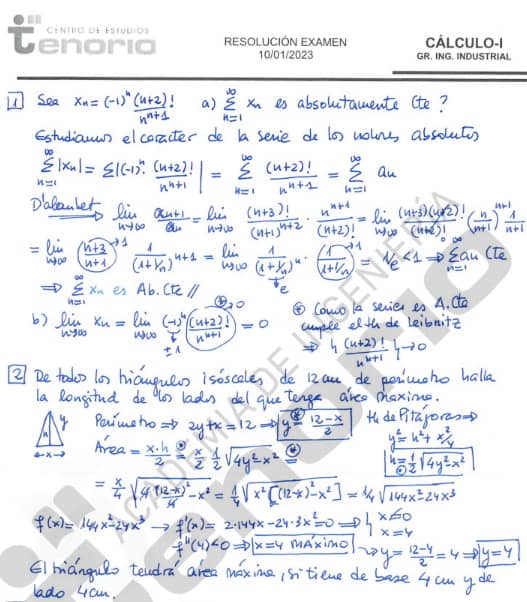 CENTRO DE ESTUDIOS
tenorio
RESOLUCIÓN EXAMEN
10/01/2023
CÁLCULO-I
GR. ING. INDUSTRIAL
1 Sea xn = (-1)^n (n+2)! / n^(n+1) a) ∑_{n=1}^∞ xn es absolutamente Cte ?
Estudiamos el carácter de la serie de los valores absolutos
∑_{n=1}^∞ |xn| = ∑ |(-1)^n · (n+2)! / n^(n+1)| = ∑_{n=1}^∞ (n+2)! / n^(n+1) = ∑_{n=1}^∞ an
D'alambet ⇒ lim_{n→∞} an+1 / an = lim_{n→∞} (n+3)! / (n+1)^(n+2) · n^(n+1) / (n+2)! = lim_{n→∞} (n+3)(n+2)! / (n+2)! · (n / n+1)^(n+1) 1 / n+1
= lim_{n→∞} (n+3 / n+1)^→1 1 / (1+1/n)^(n+1) = lim_{n→∞} 1 / (1+1/n)^n →e · (1 / 1+1/n)^→1 = 1/e < 1 ⇒ ∑_{n=1}^∞ an Cte
⇒ ∑_{n=1}^∞ xn es Ab. Cte //
b) lim_{n→∞} xn = lim_{n→∞} (-1)^n ((n+2)! / n^(n+1))^→0 = 0
±1
⊛ Como la series es A.Cte
cumple el th de Leibnitz
⇒ { (n+2)! / n^(n+1) } → 0
2 De todos los triángulos isósceles de 12 cm de perímetro halla
la longitud de los lados del que tenga área máxima.
h y
←x→
Perímetro ⇒ 2y+x = 12 ⇒ y = 12-x / 2
th de Pitágoras ⇒
y² = h² + x²/4
h = 1/2 √4y²-x²
Área = x·h / 2 = x/2 1/2 √4y²-x² =
= x/4 √4 (12-x)²/4 - x² = 1/4 √x² [(12-x)²-x²] = 1/4 √144x²-24x³
f(x) = 144x²-24x³ → f'(x) = 2·144x-24·3x² = 0 ⇒ { x=0
x=4
f''(4)<0 ⇒ x=4 MÁXIMO → y = 12-4 / 2 = 4 ⇒ y=4
El triángulo tendrá área máxima, si tiene de base 4 cm y de
lado 4cm.
ACADEMIA DE INGENIERÍA
tenorio